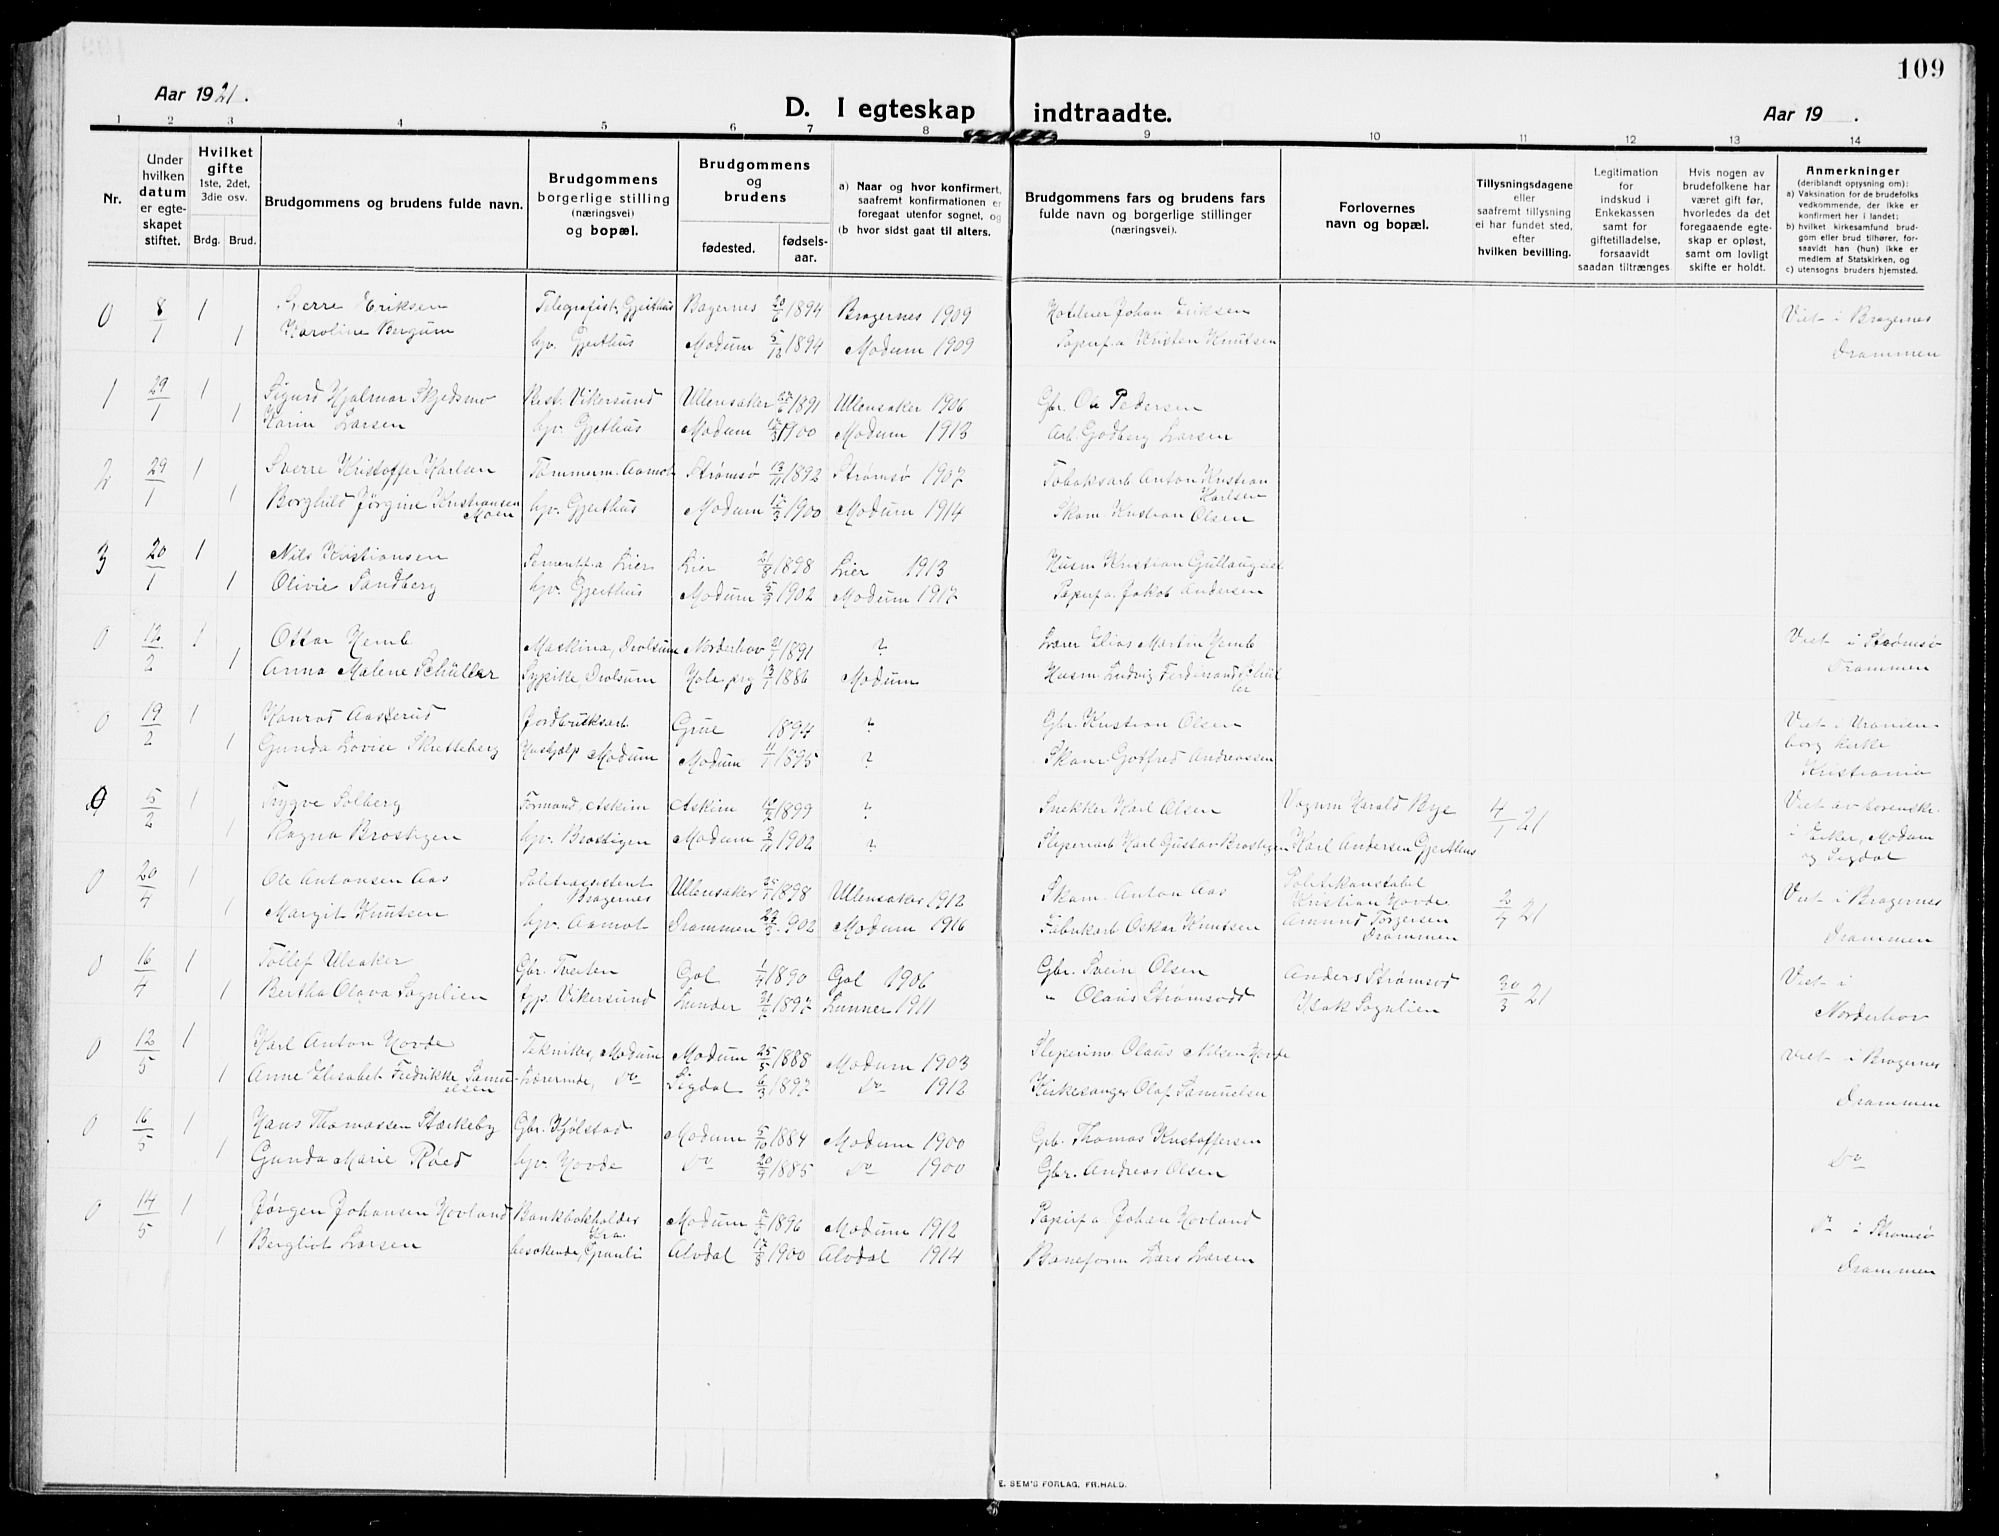 109
Aar 1921.
D. I egteskap indtraadte.
Aar 19 .
1 2 3 4 5 6 7 8 9 10 11 12 13 14
Nr.
Under hvilken datum er egteskapet stiftet.
Hvilket gifte
1ste, 2det, 3die osv.
Brdg. Brud.
Brudgommens og brudens fulde navn.
Brudgommens borgerlige stilling (næringsvei) og bopæl.
Brudgommens og brudens
fødested.
fødsels-aar.
a) Naar og hvor konfirmert, saafremt konfirmationen er foregaat utenfor sognet, og
(b hvor sidst gaat til alters.
Brudgommens fars og brudens fars fulde navn og borgerlige stillinger (næringsvei).
Forlovernes navn og bopæl.
Tillysningsdagene eller saafremt tillysning ei har fundet sted, efter hvilken bevilling.
Legitimation for indskud i Enkekassen samt for giftetilladelse, forsaavidt saadan tiltrænges
Hvis nogen av brudefolkene har været gift før, hvorledes da det foregaaende egteskap er opløst, samt om lovligt skifte er holdt.
Anmerkninger (deriblandt oplysning om):
a) Vaksination for de brudefolks vedkommende, der ikke er konfirmert her i landet;
b) hvilket kirkesamfund brudgom eller brud tilhører, forsaavidt han (hun) ikke er medlem af Statskirken, og
c) utensogns bruders hjemsted.
0 8/1 1 Sverre Eriksen Telegrafist, Gjeithus Bragernes 20/6 1894 Bragernes 1909 Johan Eriksen Viet i Bragernes
1 Karoline Bergum hjv. Gjeithus Modum 5/12 1894 Modum 1909 Papirf.a Kristen Knutsen Drammen
1 29/1 1 Sigurd Hjalmar Skjedsmo Best. Vikersund Ullensaker 1891 Ullensaker 1906 Gbr. Ole Pedersen
1 Karin Larsen hjv. Gjethus Modum 1900 Modum 1913 Arb. Godberg Larsen
2 29/1 1 Sverre Kristoffer Karlsen Tømmerm. Aamot Strømsø 1892 Strømsø 1907 Tobaksarb Anton Kristian Karlsen
1 Borghild Jørgine Kristiansen Moen hjv. Gjeithus Modum 1900 Modum 1914 Skom Kristian Olsen
3 20/1 1 Nils Kristiansen Sementf.a Lier Lier 21/8 1898 Lier 1913 Husm Kristian
1 Olivie Sandberg hjv. Gjeithus Modum 5/9 1902 Modum 1917 Papirf.a. Jakob Andersen
0 12/2 1 Ottar Hemb Maskina, Drolsum Norderhov 1891 ? Lærer Elias Martin Hemb Viet i Strømsø
1 Anna Malene Schüller Sypike, Drolsum Hole prg 13/1 1886 Modum Husm Ludvig Ferdinand Schüller Drammen
0 19/2 1 Konrad Aasterud Jordbruksarb Grue 1894 ? Gbr. Kristian Olsen Viet i Uranienborg kirke
1 Gunda Lovise Skretteberg Hushjælp Modum Modum 11/1 1895 ? Skom Gotfred Andreassen Kristiania
0 5/2 1 Trygve Solberg Formand, Askim Askim 1899 ? Snekker Karl Olsen Vogum Harald Bye 4/1 21 Viet av sorenskr.
1 Ragna Brostigen hjv. Brostigen Modum 1902 ? Sliperiarb Karl Gustav Brostigen Karl Andersen Gjeithus i Eiker, Modum og Sigdal
0 20/4 1 Ole Antonsen Aas Politiassistent Bragernes Ullensaker 1898 Ullensaker 1912 Skom. Anton Aas Politikonstabel Kristian Hovde 2/4 21 Viet i Bragernes
1 Margit Knutsen hjv. Aamot Drammen 1902 Modum 1916 Fabrikarb Oskar Knutsen Amund Torgersen Drammen Drammen
0 16/4 1 Tollef Ulsaker Gbr. Tveiten Gol 1890 Gol 1906 Gbr. Svein Olsen Anders Strømsod 30/3 21 Viet i
1 Bertha Olava Sognlien hjv. Vikersund Lunder 1897 Lunner 1911 " Olaus Strømsodd Isak Sognlien Norderhov
0 12/5 1 Karl Anton Hovde Tekniker, Modum Modum 25/5 1888 Modum 1903 Sliperimo Olaus Nilsen Hovde Viet i Bragernes
1 Anne Elisabet Fredrikke Samuelsen Lærerinde, Do Sigdal 6/3 1897 Do 1912 Kirkesanger Olaf Samuelsen Drammen
0 16/5 1 Hans Thomassen Stærkeby Gbr. Kjølstad Modum 5/10 1884 Modum 1900 Gbr. Thomas Kristoffersen
1 Gunda Marie Røed hjv. Hovde Do 20/9 1885 Do 1900 Gbr. Andreas Olsen Do
0 14/5 1 Jørgen Johansen Hovland Bankbokholder Kra Modum 1896 Modum 1912 Papirf.a. Johan Hovland Do i Strømsø
1 Bergliot Larsen besøkende, Granli Alvdal 17/8 1900 Alvdal 1914 Baneform Lars Larsen Drammen
E. SEM'S FORLAG, FR.HALD.